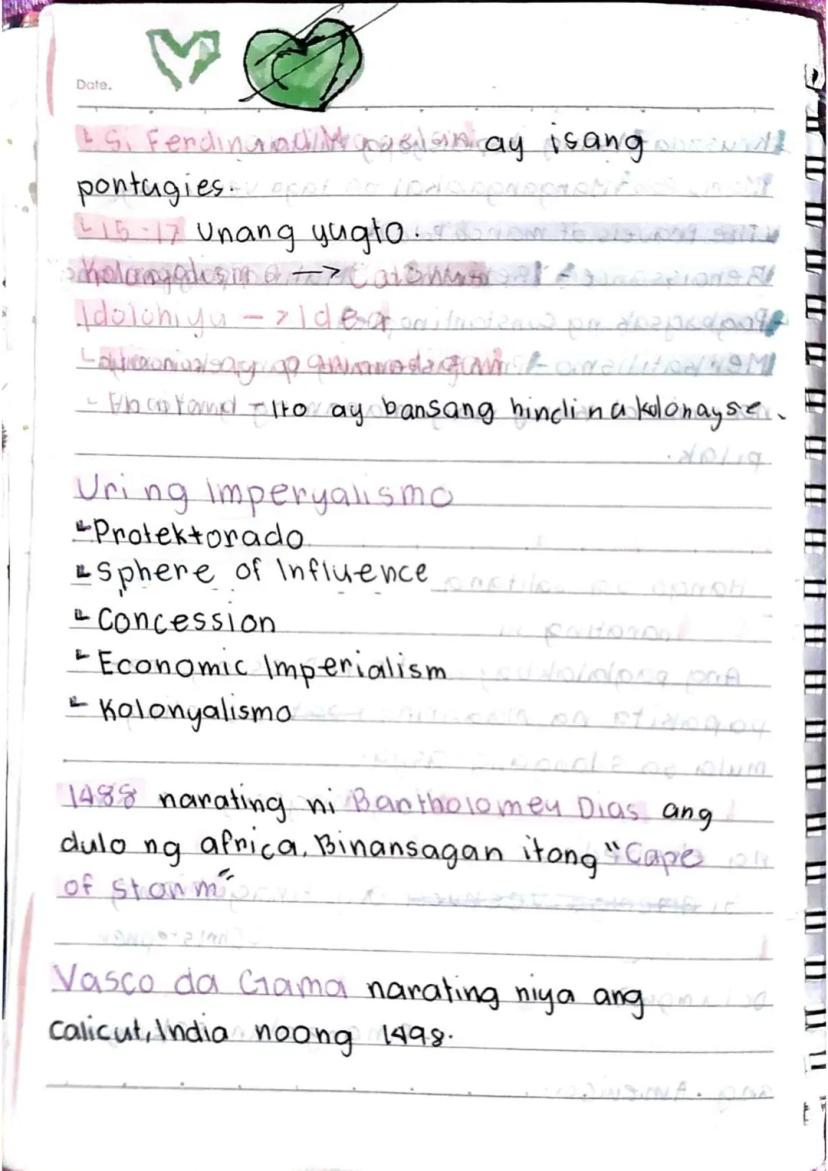 Date.
Si Ferdinand Magaglan ay isang
pontugies.
15-17 Unang yugto.
Kolonyalismo →
Idolohiya → Idea
- Ito ay bansang hindi na kolonayse.
Uri ng Imperyalismo
Protektorado
Sphere of Influence
Concession
Economic Imperialism
Kolonyalismo
1488 narating ni Bantholomeu Dias ang
dulo ng africa. Binansagan itong "Cape
of storm"
Vasco da Gama narating niya ang
Calicut, India noong 1498.